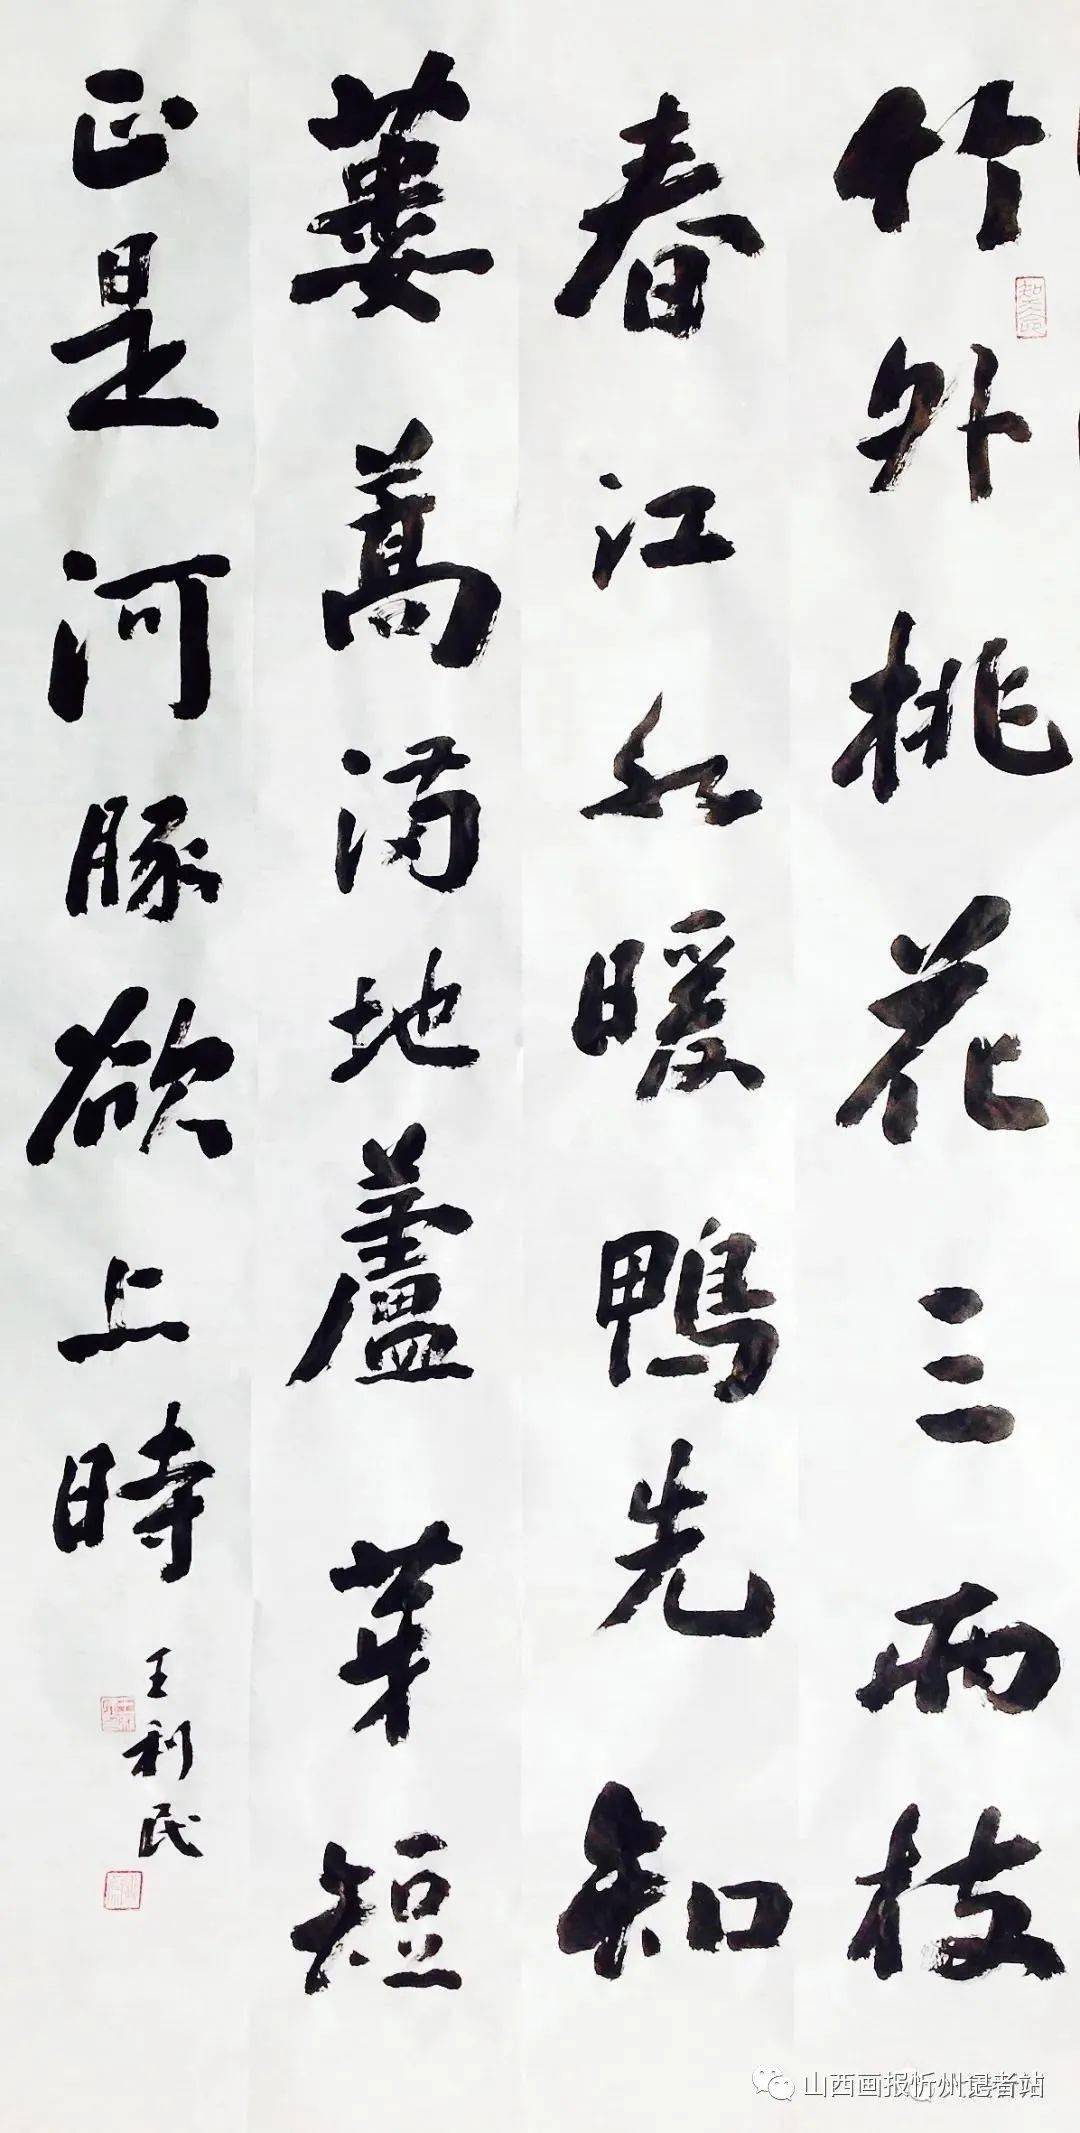 竹外桃花三兩枝
春江水暖鴨先知
蔞蒿滿地蘆芽短
正是河豚欲上時
王利民
山西画报忻州记者站